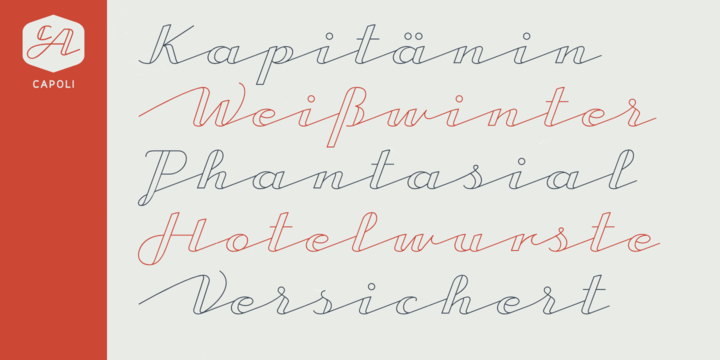 CA
CAPOLI
Kapitänin
Weißwinter
Phantasial
Hotelwurste
Versichert